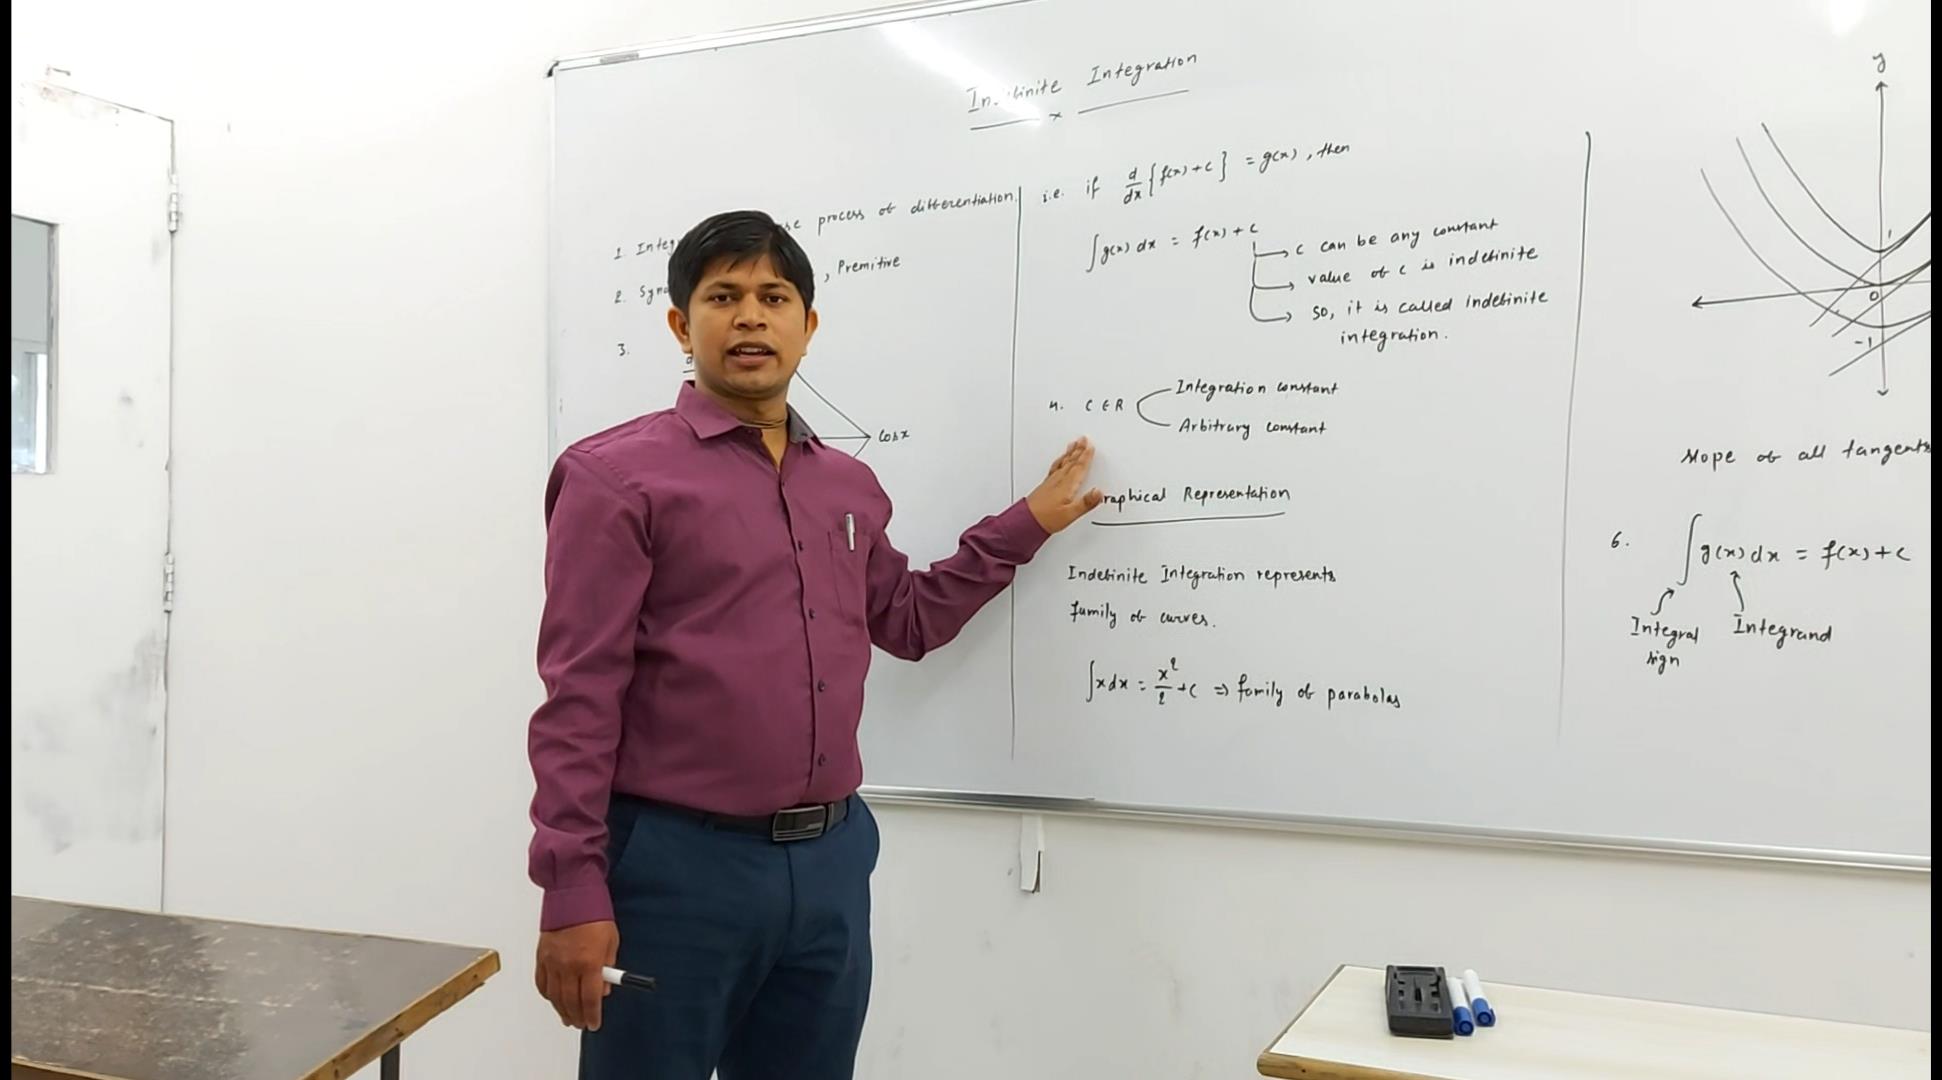 Indefinite Integration
1. Integ se process of differentiation.
2. Syno , Premitive
3.
d
cos x
i.e. if d/dx {f(x)+c} = g(x), then
∫g(x) dx = f(x)+c
c can be any constant
value of c is indefinite
so, it is called indefinite
integration.
4. C ∈ R
Integration constant
Arbitrary constant
raphical Representation
Indefinite Integration represents
family of curves.
∫x dx = x²/2 + c ⇒ family of parabolas
y
1
0
-1
slope of all tangents
6. ∫g(x) dx = f(x)+c
Integral
sign
Integrand